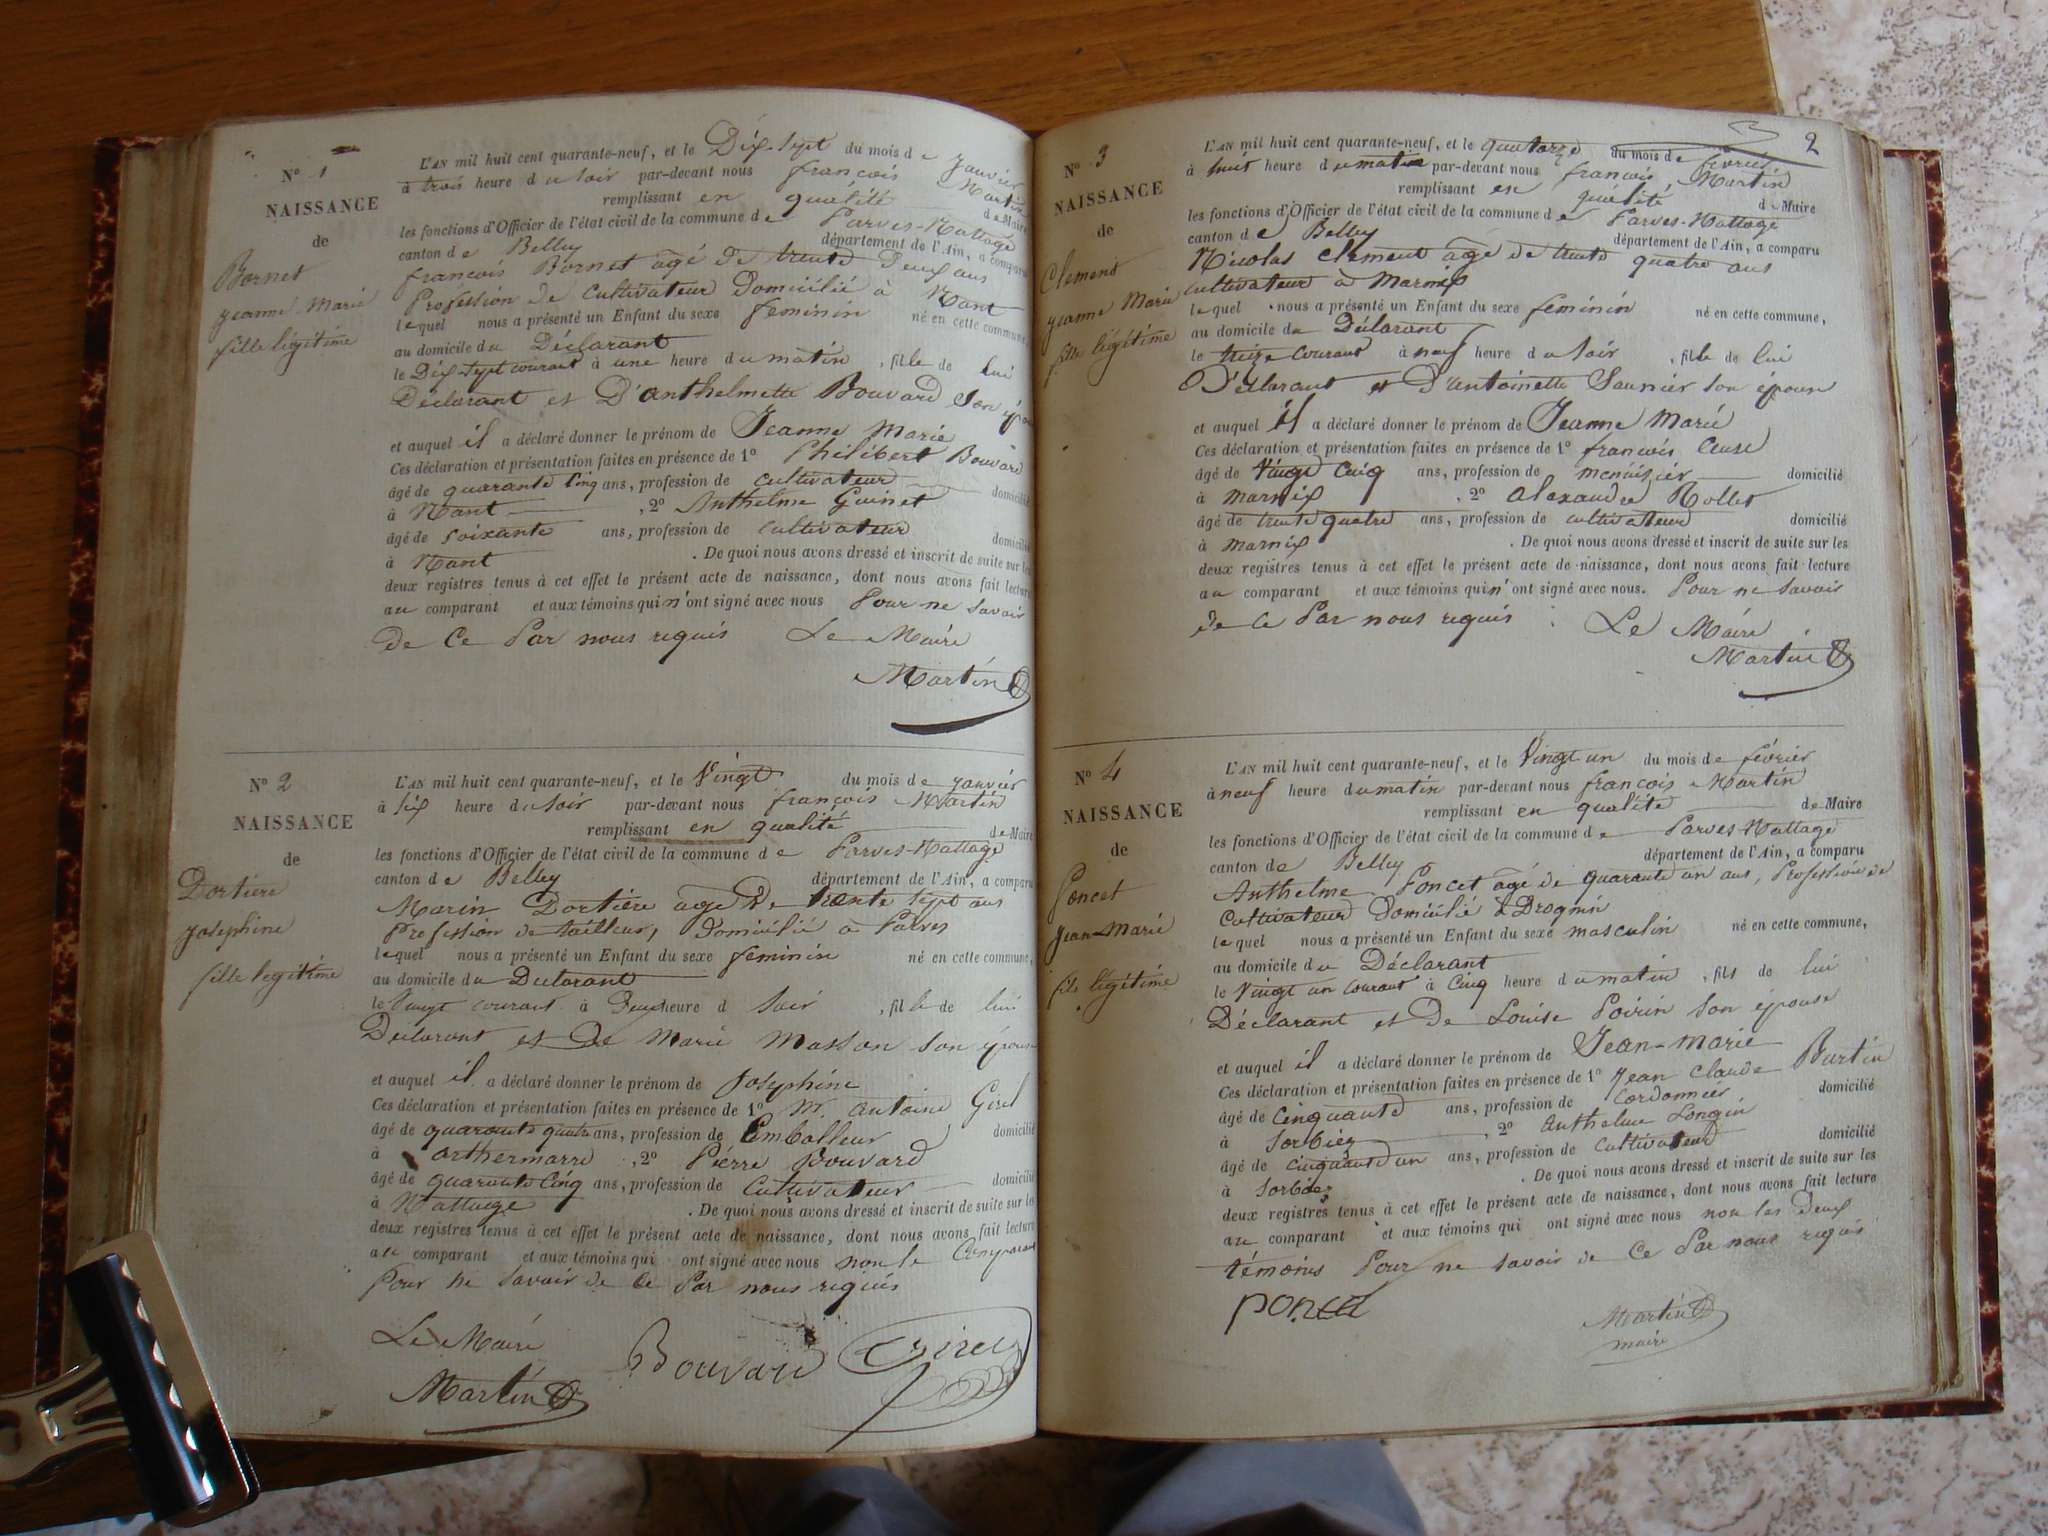 N° 1
NAISSANCE
de
Bornet
jeanne Marie
fille légitime
L'AN mil huit cent quarante-neuf, et le Dix-Sept du mois de janvier
à trois heure du soir par-devant nous françois Martin
remplissant en qualité de Maire
les fonctions d'Officier de l'état civil de la commune de Parves-Nattage
canton de Belley département de l'Ain, a comparu
françois Bornet agé de trente Deux ans
Profession de Cultivateur Domicilié à Nant
lequel nous a présenté un Enfant du sexe feminin né en cette commune,
au domicile du Déclarant
le Dix-Sept courant à une heure du matin, fille de lui
Déclarant et D'anthelmette Bouvard Son
et auquel il a déclaré donner le prénom de Jeanne Marie
Ces déclaration et présentation faites en présence de 1° Philibert Bouvard
âgé de quarante Cinq ans, profession de cultivateur domicilié
à Nant, 2° Anthelme Guinet
âgé de soixante ans, profession de cultivateur domicilié
à Nant. De quoi nous avons dressé et inscrit de suite sur les
deux registres tenus à cet effet le présent acte de naissance, dont nous avons fait lecture
au comparant et aux témoins qui n'ont signé avec nous Pour ne Savoir
De Ce Par nous requis Le Maire
Martin
N° 2
NAISSANCE
de
Dortiere
josephine
fille legitime
L'AN mil huit cent quarante-neuf, et le Vingt du mois de janvier
à six heure du soir par-devant nous françois Martin
remplissant en qualité de Maire
les fonctions d'Officier de l'état civil de la commune de Parves-Nattage
canton de Belley département de l'Ain, a comparu
Marin Dortière agé De trente sept ans
Profession de tailleur, Domicilié à Parves
lequel nous a présenté un Enfant du sexe feminin né en cette commune,
au domicile du Declarant
le Vingt courant à Deux heure d Soir, fille de lui
Declarant et De Marie Masson son épouse
et auquel il a déclaré donner le prénom de Josephine
Ces déclaration et présentation faites en présence de 1° M. antoine Girel
âgé de quarante quatre ans, profession de Emballeur domicilié
à arthemarre, 2° Pierre Bouvard
âgé de quarante Cinq ans, profession de Cultivateur domicilié
à Nattage. De quoi nous avons dressé et inscrit de suite sur les
deux registres tenus à cet effet le présent acte de naissance, dont nous avons fait lecture
au comparant et aux témoins qui ont signé avec nous non le Comparant
Pour ne Savoir de Ce Par nous requis
Le Maire
Martin Bouvard Girel
2
N° 3
NAISSANCE
de
Clement
jeanne Marie
fille légitime
L'AN mil huit cent quarante-neuf, et le quatorze du mois de févriér
à huit heure du matin par-devant nous françois Martin
remplissant en qualité de Maire
les fonctions d'Officier de l'état civil de la commune de Parves-Nattage
canton de Belley département de l'Ain, a comparu
Nicolas Clement agé de trente quatre ans
cultivateur à Marnix
lequel nous a présenté un Enfant du sexe feminin né en cette commune,
au domicile du Déclarant
le treize courant à neuf heure du soir, fille de lui
Déclarant et D'antoinette Saunier son épouse
et auquel il a déclaré donner le prénom de Jeanne Marie
Ces déclaration et présentation faites en présence de 1° françois
âgé de Vingt Cinq ans, profession de menuisier domicilié
à marnix, 2° alexandre Rollet
âgé de trente quatre ans, profession de cultivateur domicilié
à marnix. De quoi nous avons dressé et inscrit de suite sur les
deux registres tenus à cet effet le présent acte de naissance, dont nous avons fait lecture
au comparant et aux témoins qui n'ont signé avec nous. Pour ne Savoir
de Ce Par nous requis Le Maire
Martin
N° 4
NAISSANCE
de
Poncet
jean-Marie
fils légitime
L'AN mil huit cent quarante-neuf, et le Vingt un du mois de février
à neuf heure du matin par-devant nous françois Martin
remplissant en qualité de Maire
les fonctions d'Officier de l'état civil de la commune de Parves-Nattage
canton de Belley département de l'Ain, a comparu
Anthelme Poncet agé de quarante un ans, Profession de
Cultivateur Domicilié à Drognin
lequel nous a présenté un Enfant du sexe masculin né en cette commune,
au domicile du Déclarant
le Vingt un courant à Cinq heure du matin, fils de lui
Déclarant et De Louise Poirin Son épouse
et auquel il a déclaré donner le prénom de Jean-marie
Ces déclaration et présentation faites en présence de 1° jean Claude Burtin
âgé de Cinquante ans, profession de Cordonnier domicilié
à Sorbiez, 2° anthelme Longin
âgé de cinquante un ans, profession de Cultivateur domicilié
à Sorbiez. De quoi nous avons dressé et inscrit de suite sur les
deux registres tenus à cet effet le présent acte de naissance, dont nous avons fait lecture
au comparant et aux témoins qui ont signé avec nous non les Deux
témoins Pour ne savoir de Ce Par nous requis
poncet Martin
maire